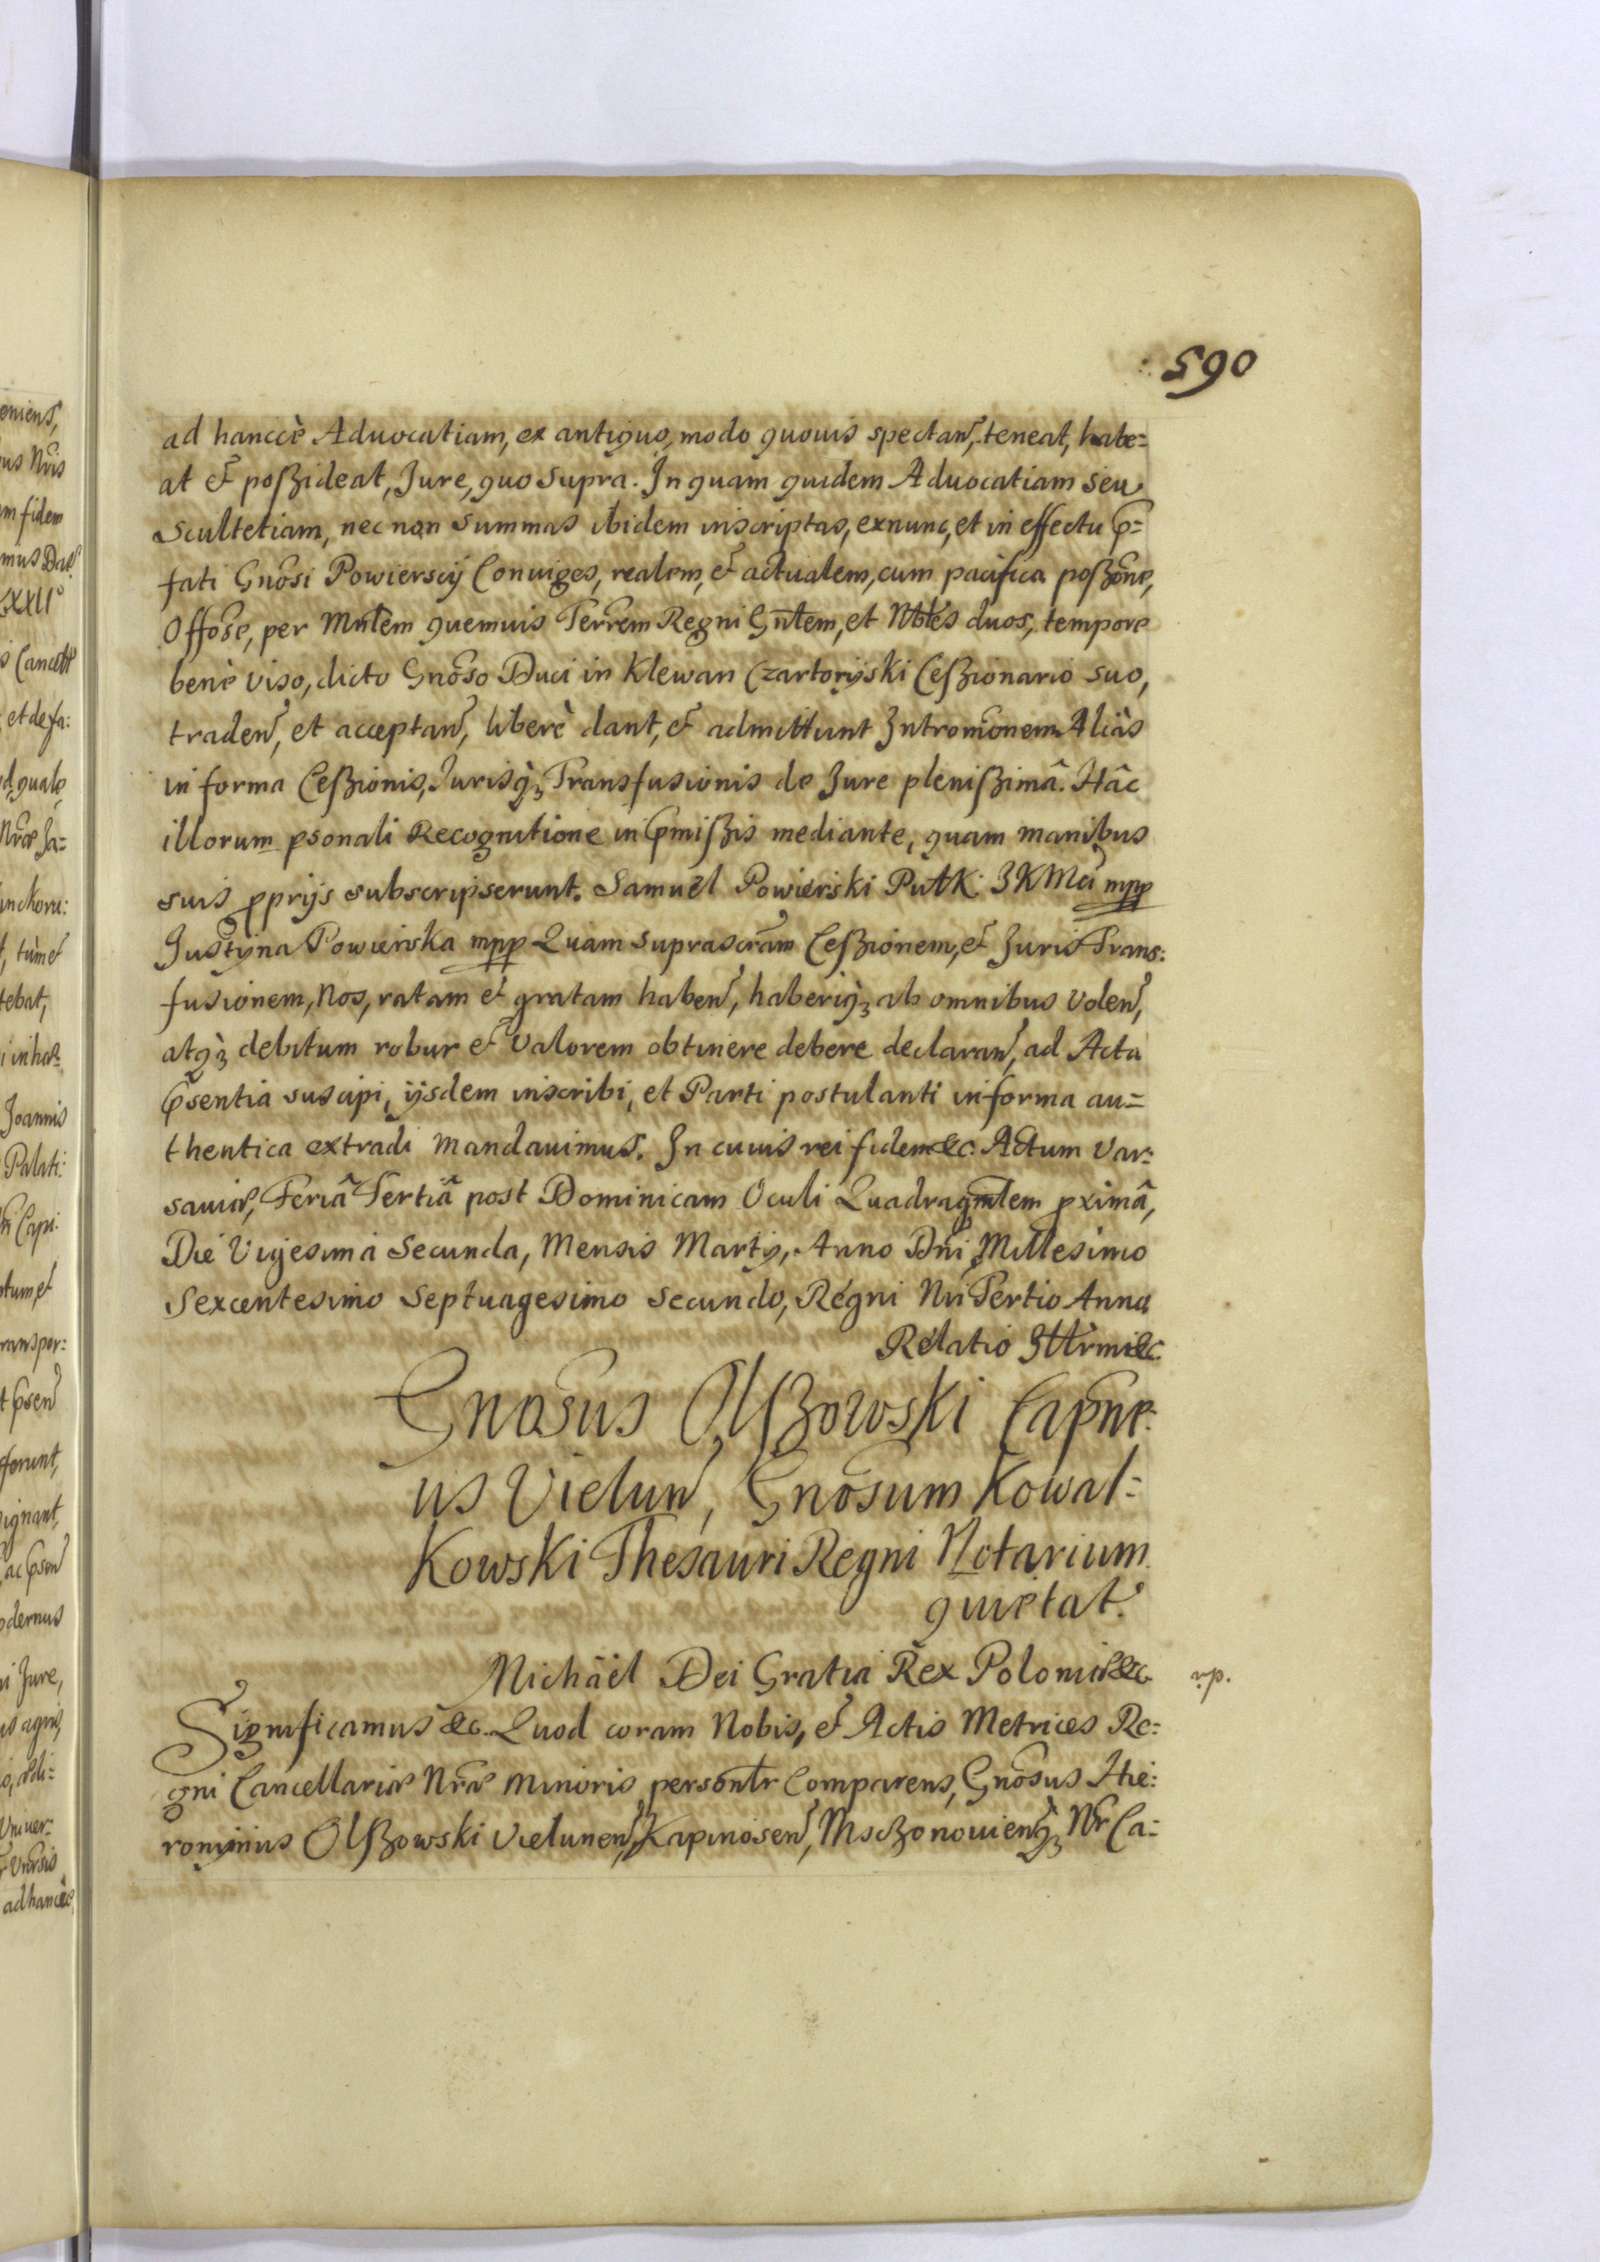 590
ad hancce Advocatiam, ex antiquo, modo quovis spectañ, teneat, habe=
at et poßideat, Jure, quo supra. In quam quidem Advocatiam seu
Scultetiam, nec non summas ibidem inscriptas, exnunc, et in effectu p̃=
fati Gnõsi Powierscij Conviges, realem, et actualem, cum pacifica poßone,
Offõse, per Mnl̃em quemvis Terrem Regni Gnl̃em, et Nbl̃es duos, tempore
bene viso, dicto Gnõso Duci in Klewan Czartoryski Ceßionario suo,
tradeñ, et acceptañ, libere dant, et admittunt Intromõnem Aliàs
in forma Ceßionis, Jurisq3 Transfusionis de Jure plenißimâ. Hâc
illorum psonali Recognitione in p̃mißis mediante, quam manibus
suis pprijs subscripserunt. Samuel Powierski Putk. JKMci mpp
Justyna Powierska mpp Quam suprascr̃am Ceßionem, et Juris Trans:
fusionem, Nos, ratam et gratam habeñ, haberiq3 ab omnibus voleñ,
atq3 debitum robur et valorem obtinere debere declarañ, ad Acta
p̃sentia suscipi, ijsdem inscribi, et Parti postulanti in forma au=
thentica extradi mandavimus. In cuius rei fidem &c. Actum Var:
saviæ, Feriâ Tertiâ post Dominicam Oculi Quadragmlem pximâ,
Die Vigesima Secunda, Mensis Martij, Anno Dñi Millesimo
Sexcentesimo Septuagesimo Secundo, Regni Nri Tertio Anno
Relatio Illr̃mi &c.
Gnosus Olßowski Capne:
us Vieluñ, Gnõsum Kowal=
Kowski Thesauri Regni Notarium
quietat.
Michäel Dei Gratia Rex Poloniæ &c.
Significamus &c. Quod coram Nobis, et Actis Metrices Re:
gni Cancellariæ Nr̃æ minoris personlr Comparens, Gnõsus Hie:
ronimus Olßowski Vieluneñ, Kapinoseñ, Msczonovieñq3 Nr Ca=